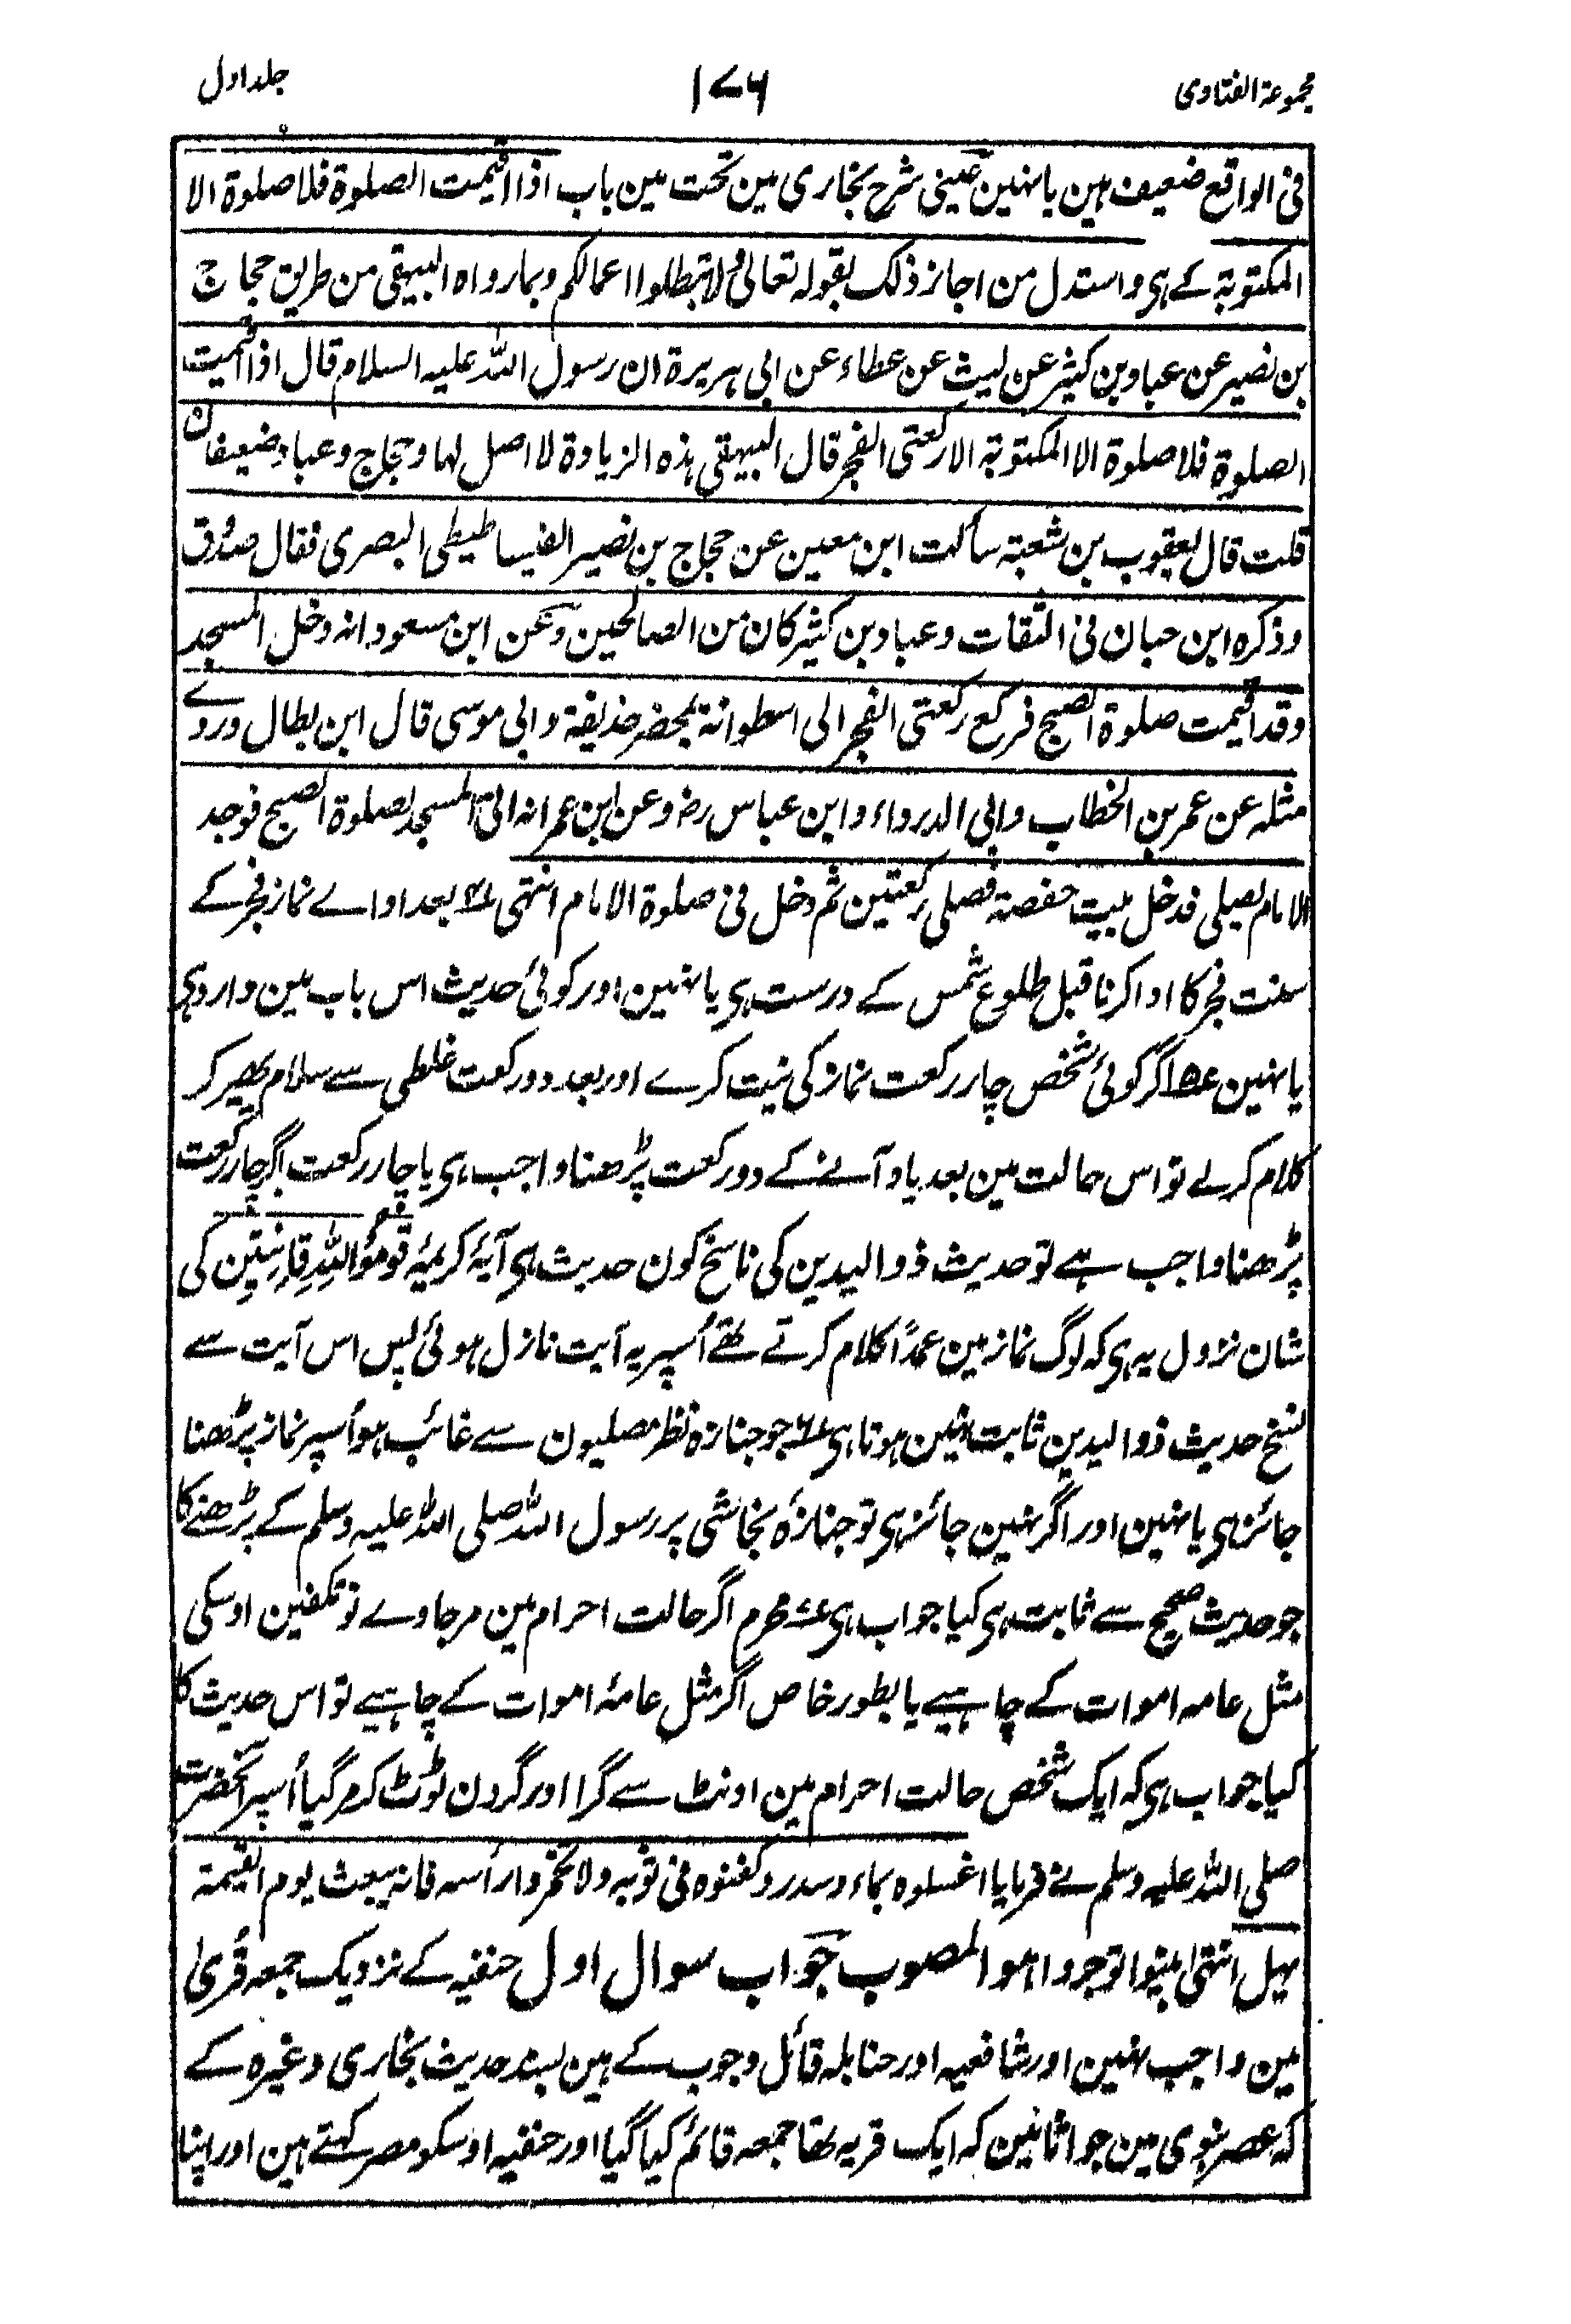 مجموعۃ الفتاوی ۱۷۶ جلد اول
فی الواقع ضعیف ہین یا نہین عینی شرح بخاری مین تحت مین باب اذا اقیمت الصلوة فلا صلوة الا
المکتوبة کے ہی و استدل من اجاز ذلک بقوله تعالی ولا تبطلوا اعمالکم وبما رواه البیهقی من طریق حجاج
بن نصیر عن عباد بن کثیر عن لیث عن عطاء عن ابی هریرة ان رسول الله علیه السلام قال اذا اقیمت
الصلوة فلا صلوة الا المکتوبة الا رکعتی الفجر قال البیهقی هذه الزیادة لا اصل لها و حجاج و عباد ضعیفان
قلت قال یعقوب بن شعبة سألت ابن معین عن حجاج بن نصیر الفیساطیطی البصری فقال صدوق
و ذکره ابن حبان فی الثقات و عباد بن کثیر کان من الصالحین و عن ابن مسعود انه دخل المسجد
و قد اقیمت صلوة الصبح فرکع رکعتی الفجر الی اسطوانة بمحضر حذیفة و ابی موسی قال ابن بطال و روے
مثله عن عمر بن الخطاب و ابی الدرداء و ابن عباس رض و عن ابن عمر انه اتی المسجد لصلوة الصبح فوجد
الامام یصلی فدخل بیت حفصة فصلی رکعتین ثم دخل فی صلوة الامام انتهی ع۴ بعد اداے نماز فجر کے
سنت فجر کا ادا کرنا قبل طلوع شمس کے درست ہی یا نہین اور کوئی حدیث اس باب مین وارد ہی
یا نہین ع۵ اگر کوئی شخص چار رکعت نماز کی نیت کرے اور بعد دو رکعت غلطی سے سلام پھیر کر
کلام کر لے تو اس حالت مین بعد یاد آنے کے دو رکعت پڑھنا واجب ہی یا چار رکعت اگر چار رکعت
پڑھنا واجب ہے تو حدیث ذو الیدین کی ناسخ کون حدیث ہی آیۂ کریمۂ قُومُوْا لِلّٰہِ قَانِتِیْن کی
شان نزول یہ ہی کہ لوگ نماز مین عمداً کلام کرتے تھے اُسپر یہ آیت نازل ہوئی پس اس آیت سے
نسخ حدیث ذو الیدین ثابت نہین ہوتا ہی ع۶ جو جنازہ نظر مصلیون سے غائب ہو اُسپر نماز پڑھنا
جائز ہی یا نہین اور اگر نہین جائز ہی تو جنازۂ نجاشی پر رسول اللہ صلی اللہ علیہ وسلم کے پڑھنے کا
جو حدیث صحیح سے ثابت ہی کیا جواب ہی ع۷ محرم اگر حالت احرام مین مر جاوے تو تکفین اوسکی
مثل عامہ اموات کے چاہیے یا بطور خاص اگر مثل عامۂ اموات کے چاہیے تو اس حدیث کا
کیا جواب ہی کہ ایک شخص حالت احرام مین اونٹ سے گرا اور گردن ٹوٹ کر مر گیا اُسپر آنحضرت
صلی اللہ علیہ وسلم نے فرمایا اغسلوه بماء و سدر و کفنوه فی ثوبه ولا تخمروا رأسه فانه یبعث یوم القیٰمة
یهل انتهی بینوا توجروا هو المصوب جواب سوال اول حنفیہ کے نزدیک جمعہ قُریٰ
مین واجب نہین اور شافعیہ اور حنابلہ قائل وجوب کے ہین بسند حدیث بخاری وغیرہ کے
کہ عصر نبوی مین جواثا مین کہ ایک قریہ تھا جمعہ قائم کیا گیا اور حنفیہ اوسکو مصر کہتے ہین اور اپنا